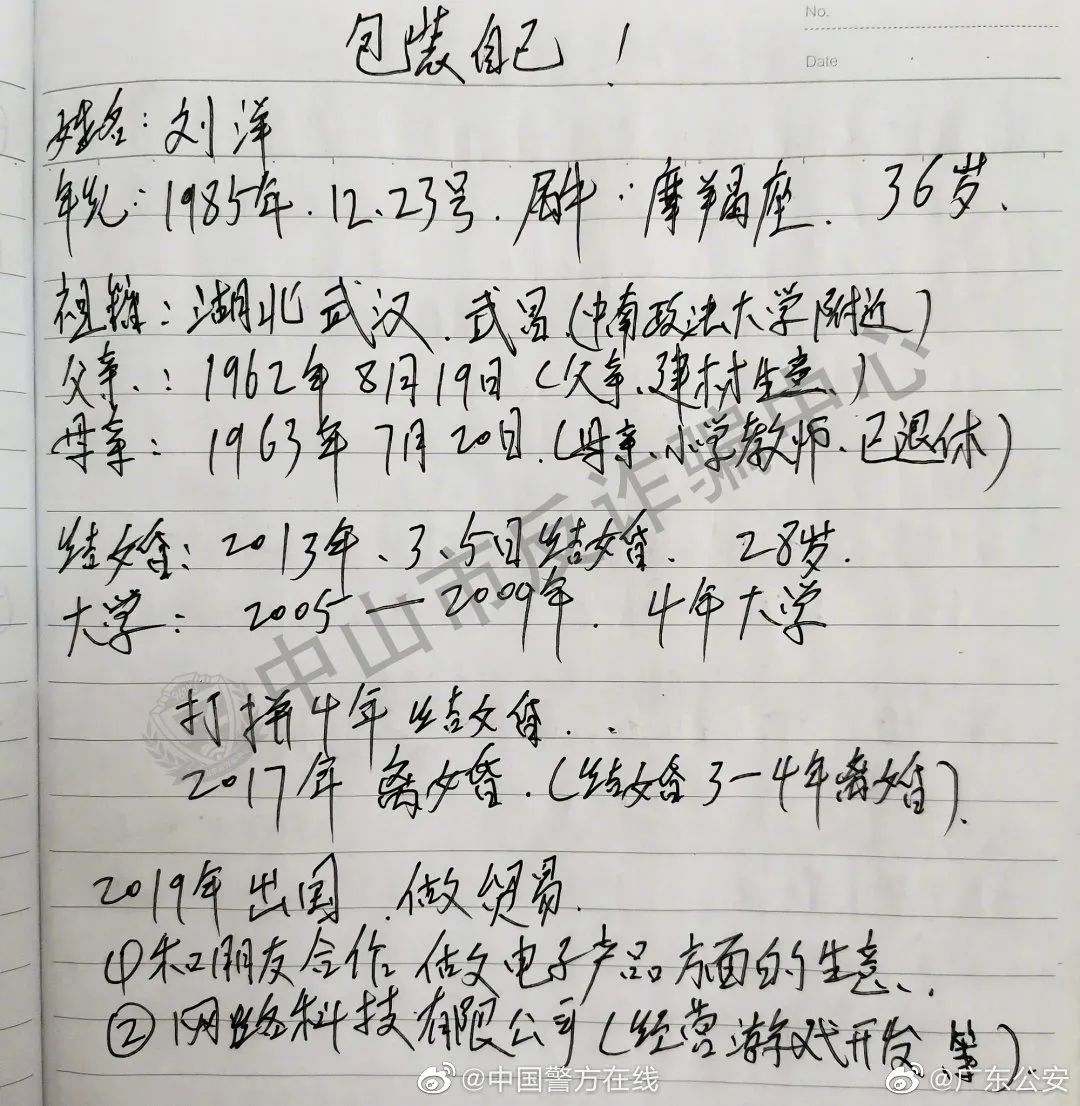 No.
Date
包装自己!
姓名:刘洋
年先:1985年.12.23号.属牛:摩羯座. 36岁.
祖籍:湖北武汉.武昌(中南政法大学附近)
父亲.:1962年8月19日(父亲、建材生意.)
母亲:1963年7月20日.(母亲、小学教师.已退休)
结婚:2013年.3.5日结婚. 28岁.
大学:2005—2009年. 4年大学
打拼4年结婚..
2017年离婚.(结婚3-4年离婚).
2019年出国.做贸易.
①和朋友合作做电子产品方面的生意.
②网络科技有限公司(经营游戏开发等).
中山市反诈骗中心
@中国警方在线
@广东公安